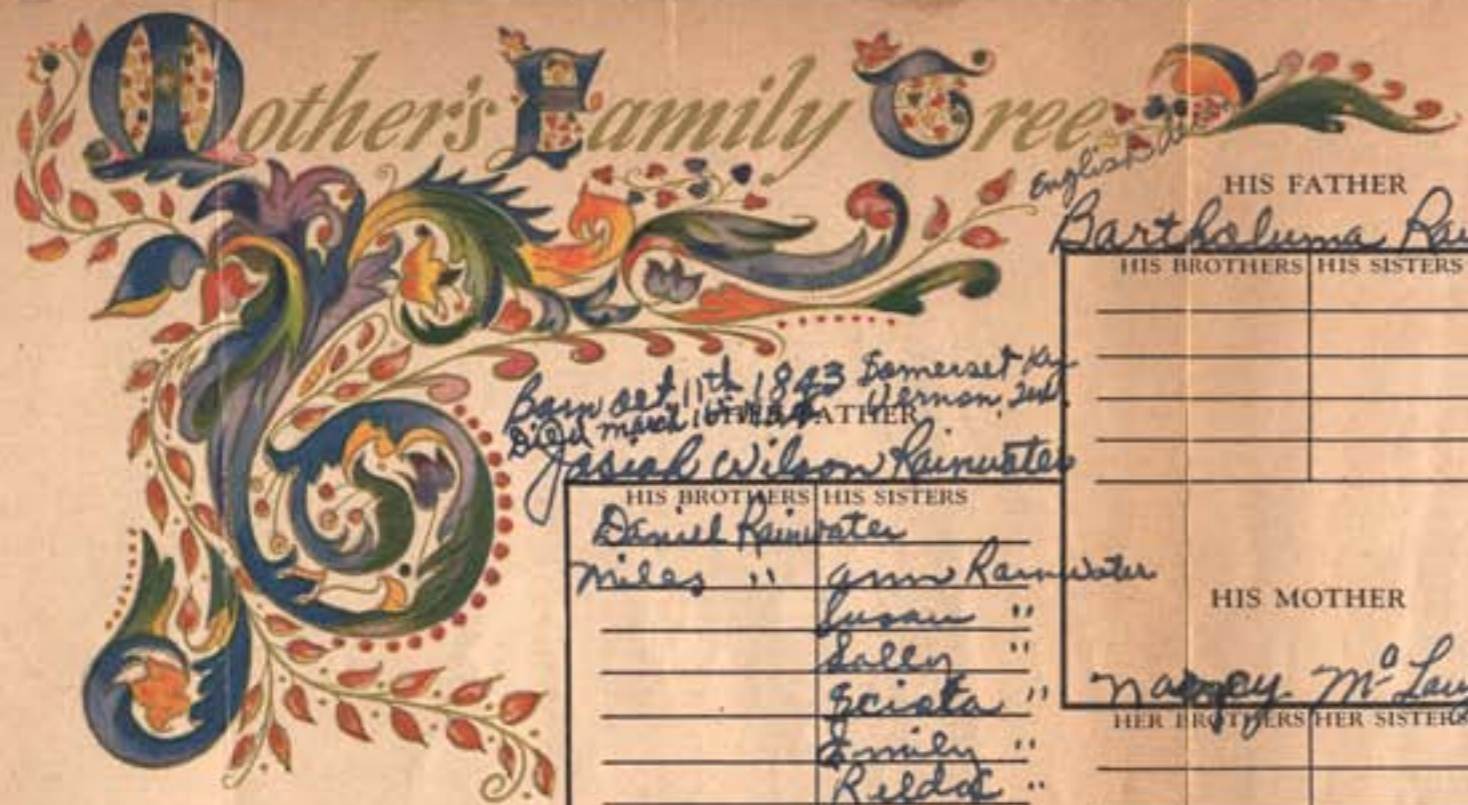 Mother's Family Tree
English
HIS FATHER
Bartholuma Rai
HIS BROTHERS HIS SISTERS
Born Oct 11th 1843 Somerset Ky
Died March 16th Vernon, Tex.
HER FATHER
Josiah Wilson Rainwater
HIS BROTHERS HIS SISTERS
Daniel Rainwater
Miles " Ann Rainwater
Susan "
HIS MOTHER
Sally "
Nancy Mc Lau
"
HER BROTHERS HER SISTERS
Emily "
"